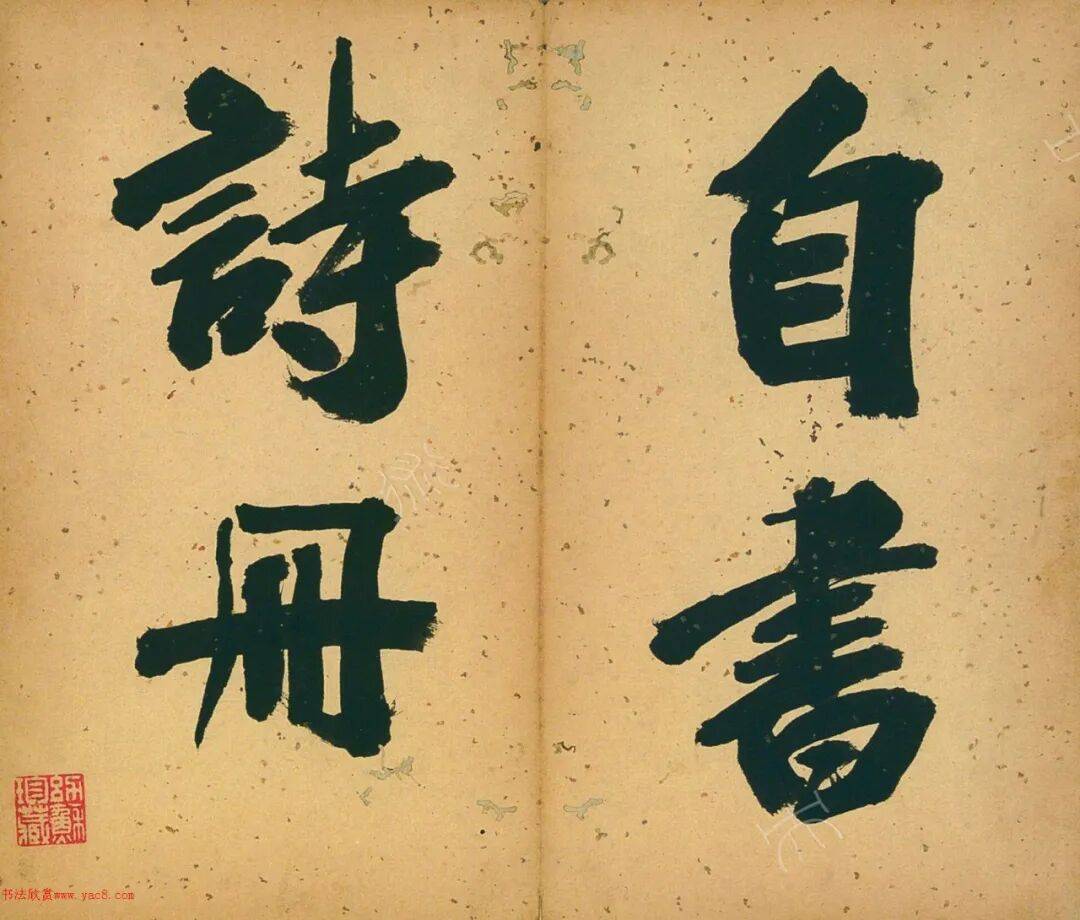 自書
詩冊
书法欣赏www.yac8.com